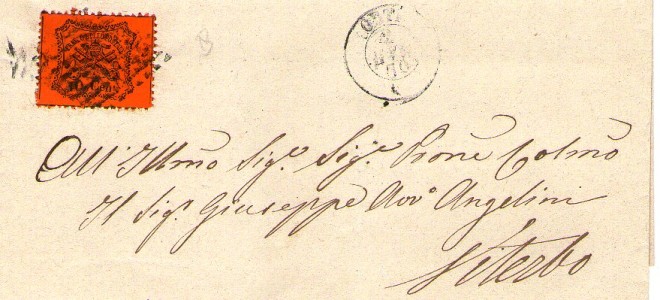 10 Cent
All' Illmo Sigr. Sigr. Prone Colmo
Il Sigr. Giuseppe Avvo Angelini
Viterbo